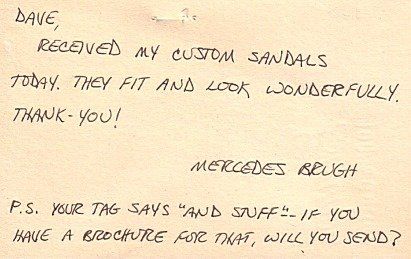 DAVE,
RECEIVED MY CUSTOM SANDALS
TODAY. THEY FIT AND LOOK WONDERFULLY.
THANK-YOU!
MERCEDES BRUGH
P.S. YOUR TAG SAYS "AND STUFF"- IF YOU
HAVE A BROCHURE FOR THAT, WILL YOU SEND?